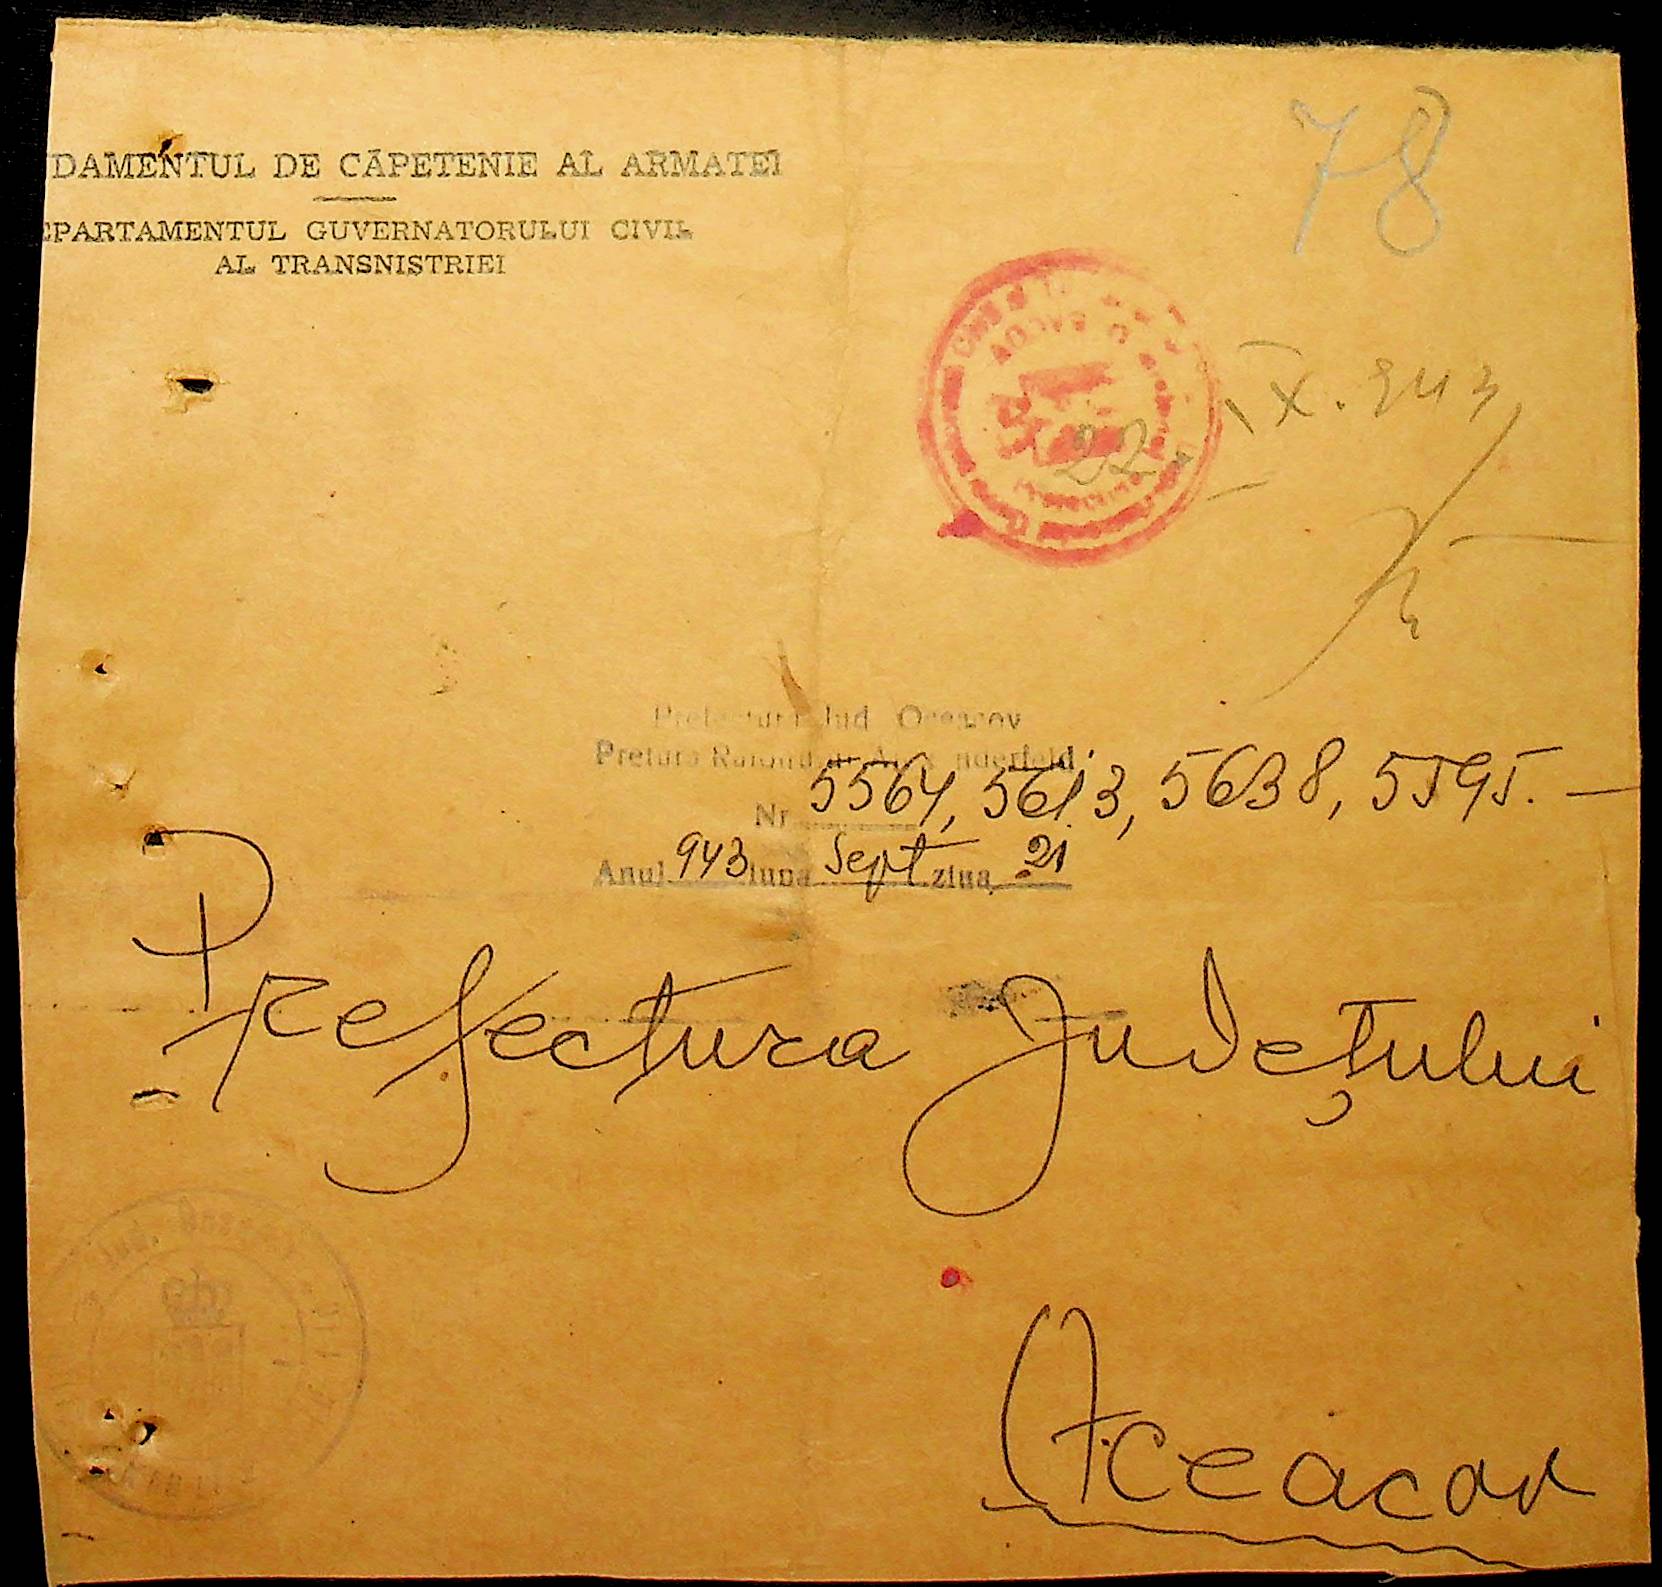 DAMENTUL DE CĂPETENIE AL ARMATEI
EPARTAMENTUL GUVERNATORULUI CIVIL
AL TRANSNISTRIEI
78
22 IX. 943
Prefectura Jud Oceacov
Pretura Raionului
Nr 5564, 5613, 5638, 5595.—
Anul 943 luna Sept ziua 21
Prefectura Județului
Oceacov